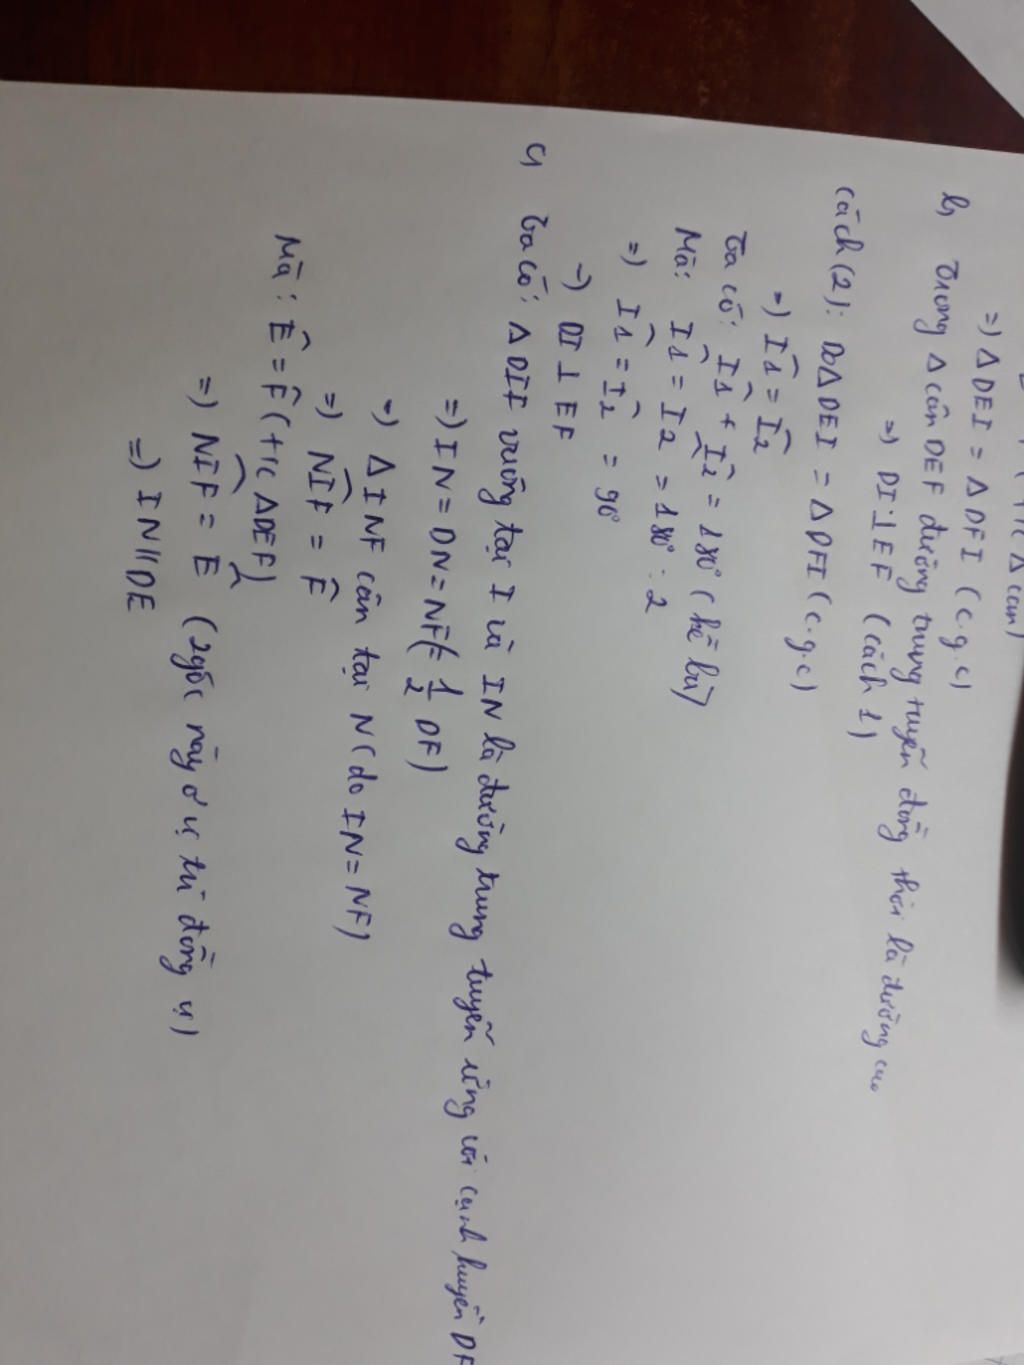 (t/c Δ cân)
=) Δ DEI = Δ DFI (c.g.c)
b, Trong Δ cân DEF đường trung tuyến đồng thời là đường cao
=) DI ⊥ EF (cách 1)
Cách (2): Do Δ DEI = Δ DFI (c.g.c)
=) Î1 = Î2
Ta có: Î1 + Î2 = 180° (kề bù)
Mà: Î1 = Î2 = 180° : 2
=) Î1 = Î2 = 90°
=) DI ⊥ EF
c, Ta có: Δ DIF vuông tại I và IN là đường trung tuyến ứng với cạnh huyền DF
=) IN = DN = NF (= 1/2 DF)
=) Δ INF cân tại N (do IN = NF)
=) NIF̂ = F̂
Mà: Ê = F̂ (t/c Δ DEF)
=) NIF̂ = Ê (2 góc này ở vị trí đồng vị)
=) IN // DE